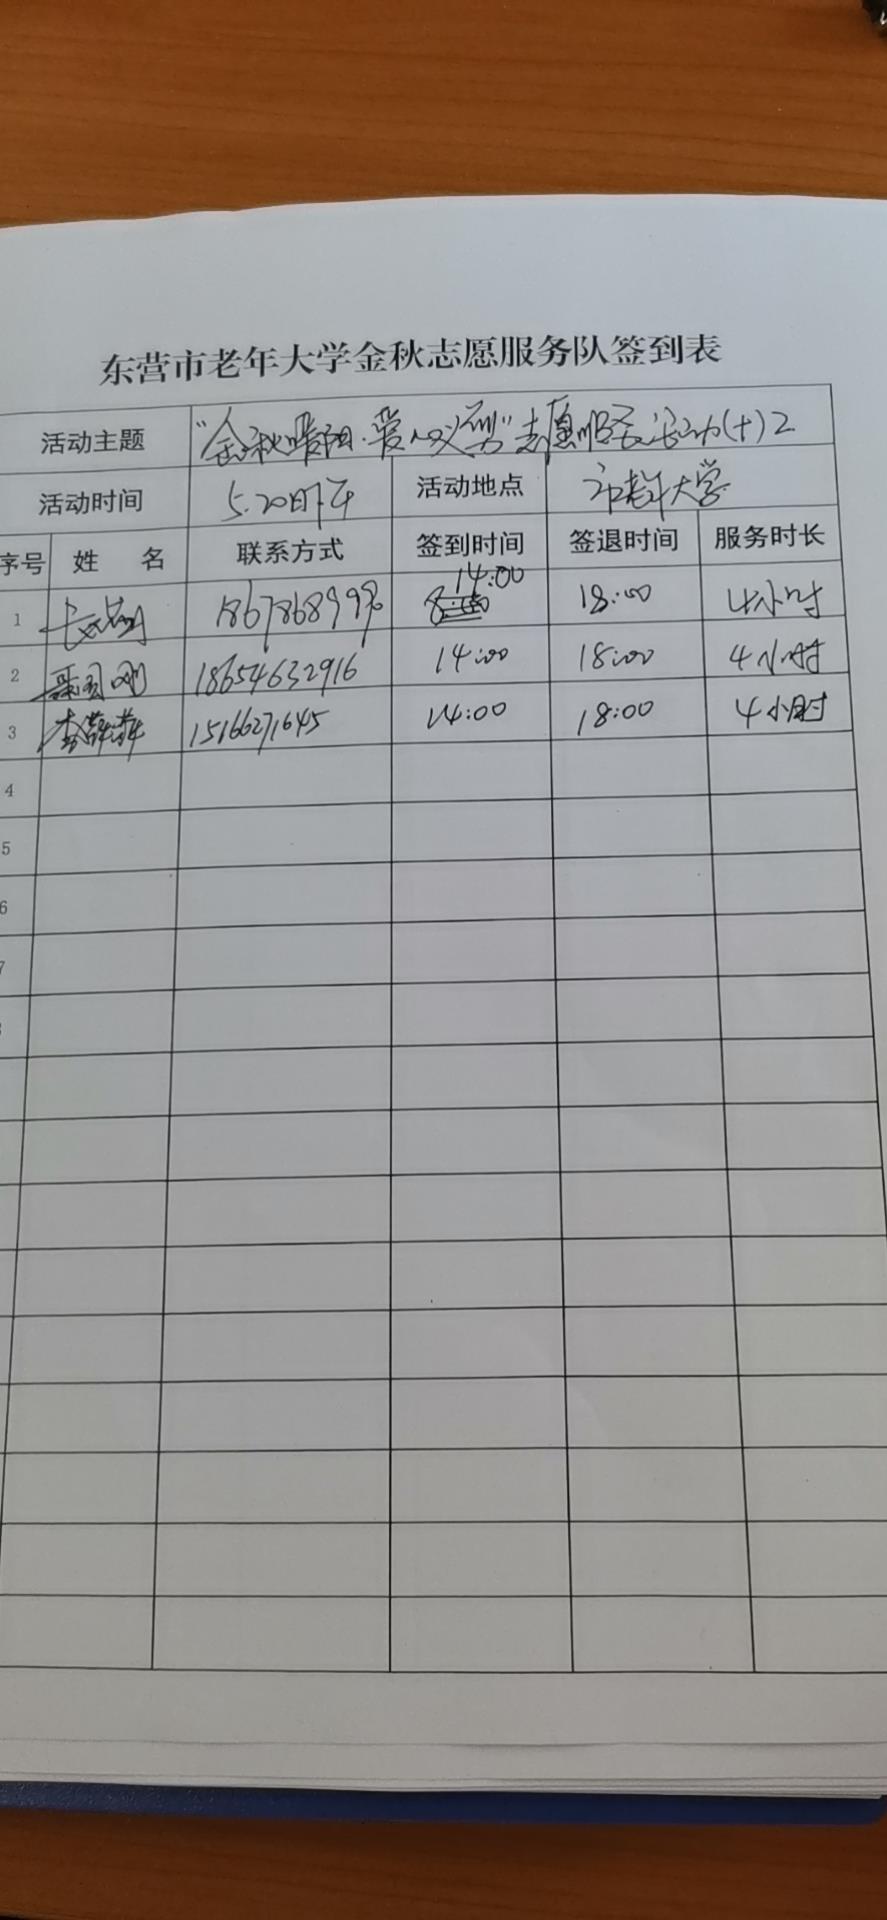 东营市老年大学金秋志愿服务队签到表
活动主题 "金秋暖阳·爱心义剪"志愿服务活动(十)2
活动时间 5.20日下午 活动地点 市老年大学
序号 姓 名 联系方式 签到时间 签退时间 服务时长
1 14:00 18:00 4小时
2 18654632916 14:00 18:00 4小时
3 李萍萍 15166271645 14:00 18:00 4小时
4
5
6
7